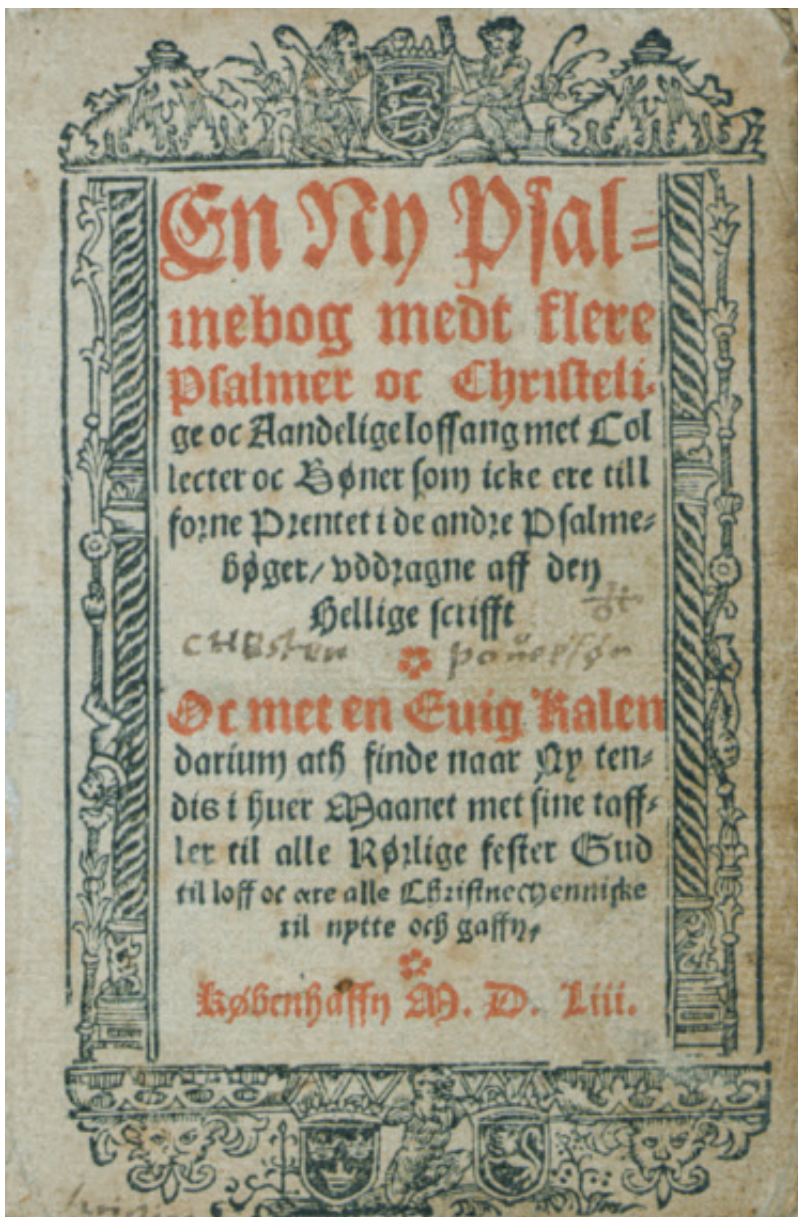 En Ny Psal=
mebog medt flere
Psalmer oc Christeli-
ge oc Aandelige loffsang met Col
lecter oc Bøner som icke ere till
forne Prentet i de andre Psalme=
bøger/ vddragne aff den
Hellige scrifft
Oc met en Euig Kalen
darium ath finde naar Ny ten=
dis i huer Maanet met sine taff=
ler til alle Rørlige fester Gud
til loff oc ære alle Christne Menniske
til nytte och gaffn,
Københaffn M. D. Liii.